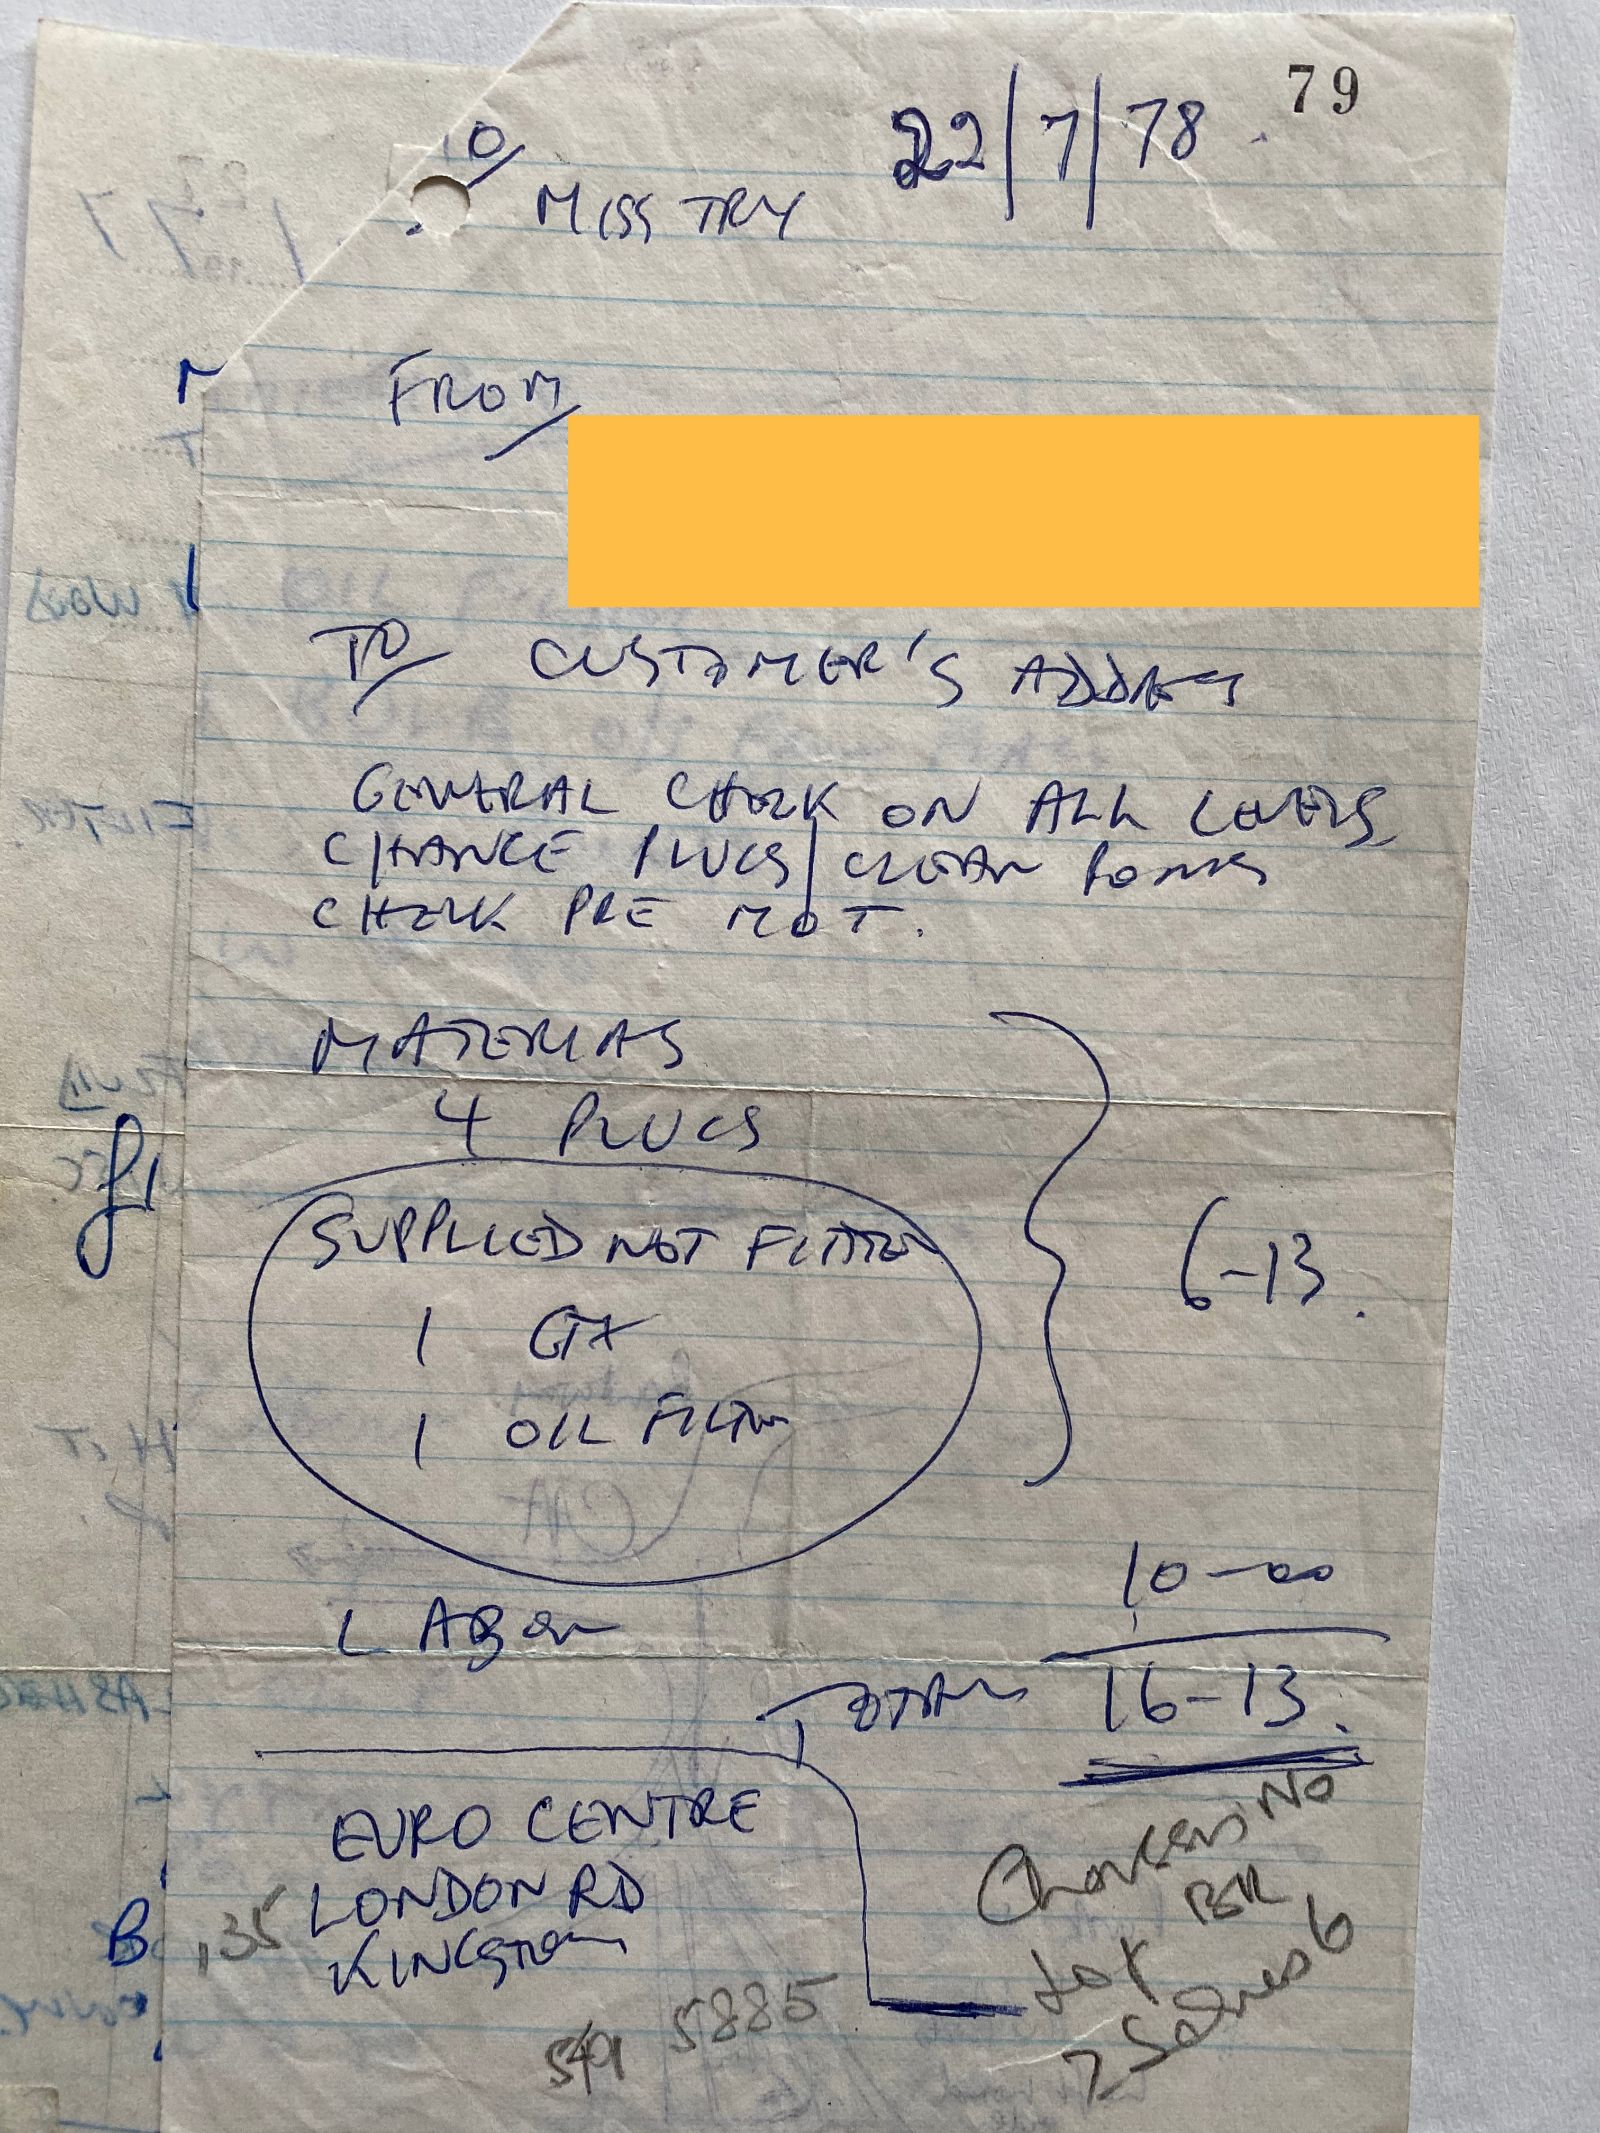 79
22/7/78.
TO
MISS TRY
FROM
TO CUSTOMER'S ADDRESS
GENERAL CHECK ON ALL LEVELS,
CHANGE PLUGS/CLEAN POINTS
CHECK PRE MOT.
MATERIALS
4 PLUGS
SUPPLIED NOT FITTED
1 GTX
1 OIL FILTER
6-13.
10-00
LABOUR
TOTAL 16-13.
EURO CENTRE
135 LONDON RD
KINGSTON
549 5885
No
for
7 Series 6